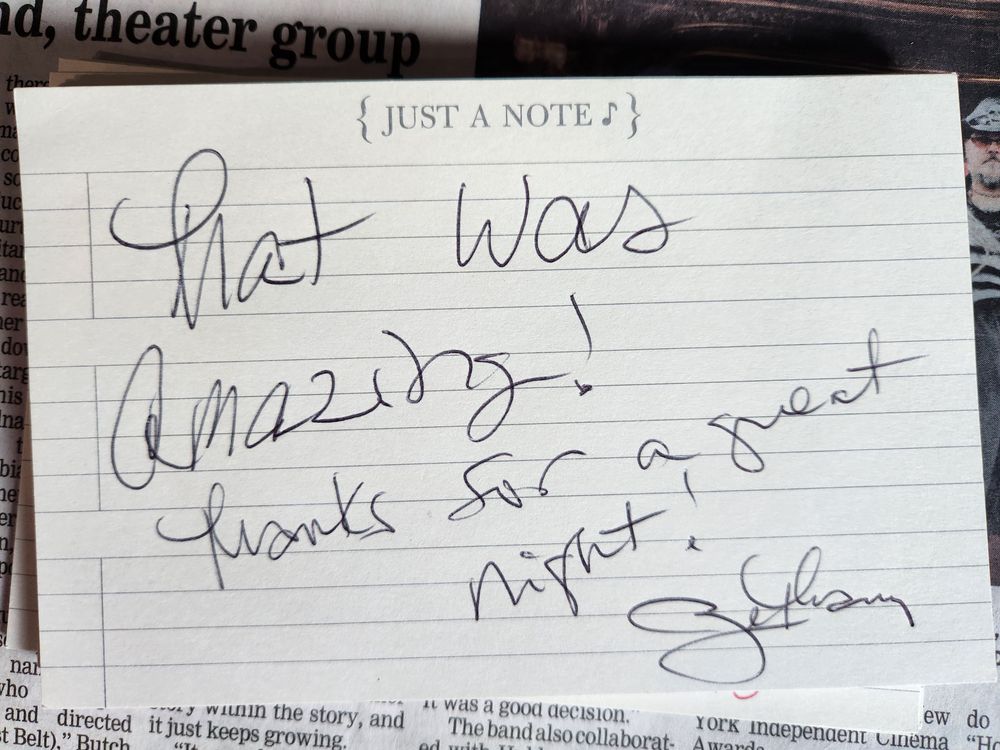 nd, theater group
{ JUST A NOTE ♪ }
That was
Amazing!
thanks for a great
night!
who
and directed
st Belt)," Butch
within the story, and
it just keeps growing.
"It
it was a good decision.
The band also collaborat-
York Independent Cinema
Awards
ew do
"H